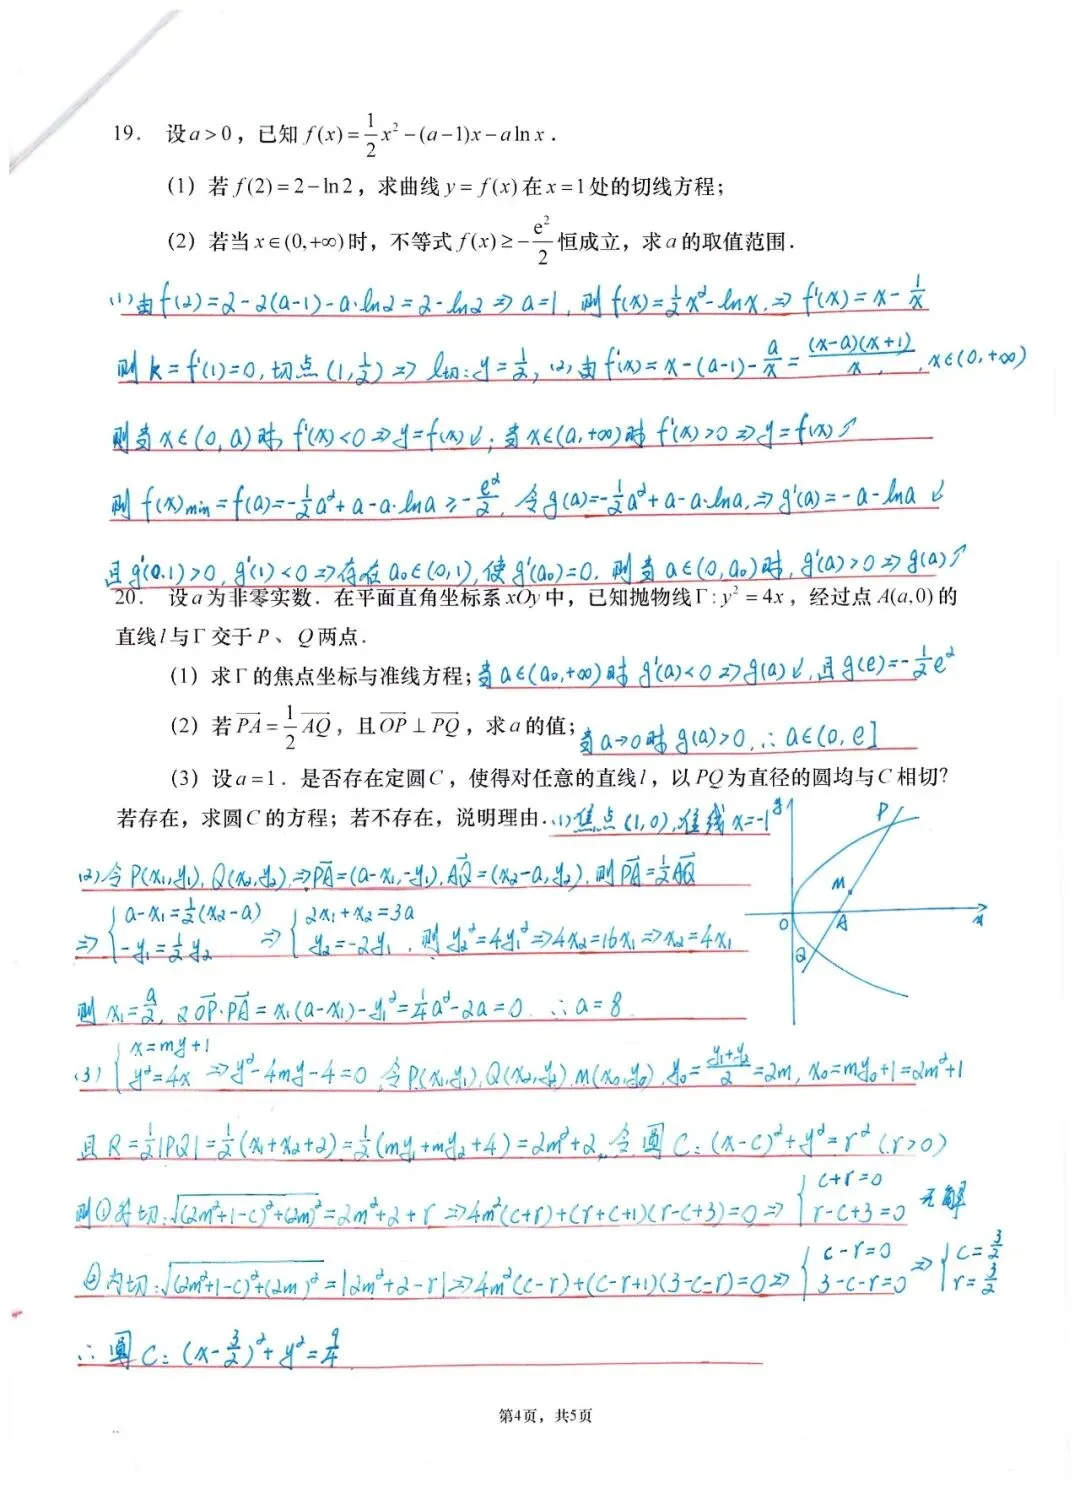 19. 设a>0，已知f(x)=\frac{1}{2}x²-(a-1)x-a ln x.
(1) 若f(2)=2-ln2，求曲线y=f(x)在x=1处的切线方程；
(2) 若当x∈(0,+∞)时，不等式f(x)≥-\frac{e²}{2}恒成立，求a的取值范围.
(1)由f(2)=2-2(a-1)-a·ln2=2-ln2⇒a=1, 则f(x)=\frac{1}{2}x²-lnx.⇒f'(x)=x-\frac{1}{x}
则k=f'(1)=0,切点(1,\frac{1}{2})⇒l切:y=\frac{1}{2}; (2)由f'(x)=x-(a-1)-\frac{a}{x}=\frac{(x-a)(x+1)}{x}, x∈(0,+∞)
则当x∈(0,a)时f'(x)<0⇒y=f(x)↙; 当x∈(a,+∞)时f'(x)>0⇒y=f(x)↗
则f(x)min=f(a)=-\frac{1}{2}a²+a-a·lna≥-\frac{e²}{2}, 令g(a)=-\frac{1}{2}a²+a-a·lna,⇒g'(a)=-a-lna↙
且g'(0.1)>0, g'(1)<0⇒存在a₀∈(0,1),使g'(a₀)=0. 则当a∈(0,a₀)时,g'(a)>0⇒g(a)↗
20. 设a为非零实数. 在平面直角坐标系xOy中，已知抛物线Γ:y²=4x，经过点A(a,0)的
直线l与Γ交于P、Q两点.
(1) 求Γ的焦点坐标与准线方程；当a∈(a₀,+∞)时g'(a)<0⇒g(a)↙,且g(e)=-\frac{1}{2}e²
(2) 若\overrightarrow{PA}=\frac{1}{2}\overrightarrow{AQ}，且\overrightarrow{OP}⊥\overrightarrow{PQ}，求a的值；当a→0时g(a)>0,∴a∈(0,e]
(3) 设a=1. 是否存在定圆C，使得对任意的直线l，以PQ为直径的圆均与C相切？
若存在，求圆C的方程；若不存在，说明理由. (1)焦点(1,0),准线x=-1
y
P
M
O
A
x
Q
(2)令P(x₁,y₁), Q(x₂,y₂),⇒\overrightarrow{PA}=(a-x₁,-y₁),\overrightarrow{AQ}=(x₂-a,y₂),则\overrightarrow{PA}=\frac{1}{2}\overrightarrow{AQ}
⇒{a-x₁=\frac{1}{2}(x₂-a) -y₁=\frac{1}{2}y₂ ⇒{2x₁+x₂=3a y₂=-2y₁, 则y₂²=4y₁²⇒4x₂=16x₁⇒x₂=4x₁
则x₁=\frac{a}{2}, 又\overrightarrow{OP}·\overrightarrow{PA}=x₁(a-x₁)-y₁²=\frac{1}{4}a²-2a=0 ∴a=8
(3){x=my+1 y²=4x⇒y²-4my-4=0,令P(x₁,y₁),Q(x₂,y₂),M(x₀,y₀),y₀=\frac{y₁+y₂}{2}=2m, x₀=my₀+1=2m²+1
且R=\frac{1}{2}|PQ|=\frac{1}{2}(x₁+x₂+2)=\frac{1}{2}(my₁+my₂+4)=2m²+2,令圆C:(x-c)²+y²=r²(r>0)
则①外切:√((2m²+1-c)²+(2m)²)=2m²+2+r⇒4m²(c+r)+(r+c+1)(r-c+3)=0⇒{c+r=0 r-c+3=0 无解
②内切:√((2m²+1-c)²+(2m)²)=|2m²+2-r|⇒4m²(c-r)+(c-r+1)(3-c-r)=0⇒{c-r=0 3-c-r=0⇒{c=\frac{3}{2} r=\frac{3}{2}
∴圆C:(x-\frac{3}{2})²+y²=\frac{9}{4}
第4页，共5页